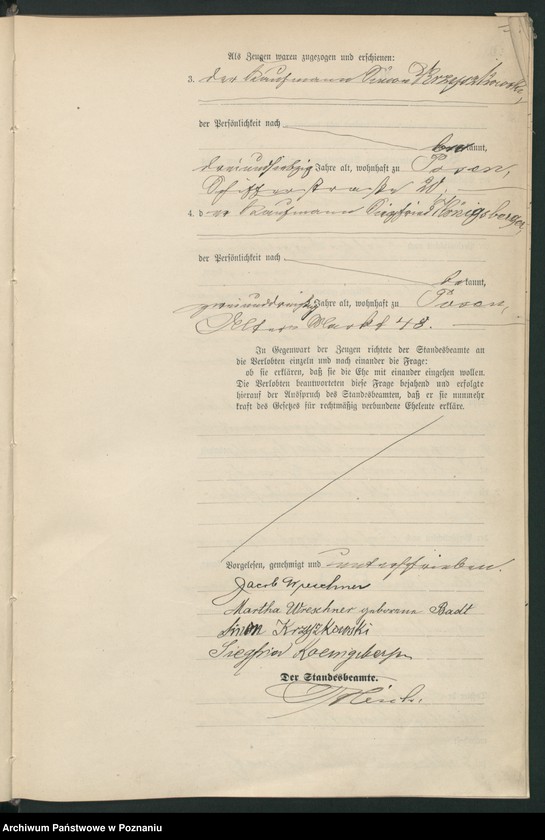 Als Zeugen waren zugezogen und erschienen:
3. der Kaufmann Simon Krzyszkowski,
der Persönlichkeit nach
bekannt,
dreiundsiebzig Jahre alt, wohnhaft zu Posen,
Schifferstraße 20.
4. der Kaufmann Siegfried Königsberger,
der Persönlichkeit nach
bekannt,
zweiunddreißig Jahre alt, wohnhaft zu Posen,
Alter Markt 48.
In Gegenwart der Zeugen richtete der Standesbeamte an
die Verlobten einzeln und nach einander die Frage:
ob sie erklären, daß sie die Ehe mit einander eingehen wollen.
Die Verlobten beantworteten diese Frage bejahend und erfolgte
hierauf der Ausspruch des Standesbeamten, daß er sie nunmehr
kraft des Gesetzes für rechtmäßig verbundene Eheleute erkläre.
Vorgelesen, genehmigt und unterschrieben.
Jacob Wreschner
Martha Wreschner geborene Badt
Simon Krzyżkowski
Siegfried Koenigsberger
Der Standesbeamte.
Archiwum Państwowe w Poznaniu